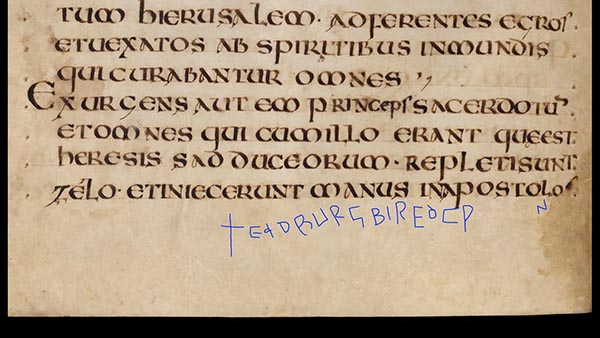 TUM HIERUSALEM· ADFERENTES EGROS·
ETUEXATOS AB SPIRITIBUS INMUNDIS
QUICURABANTUR OMNES
EXURGENS AUTEM PRINCEPS SACERDOTŪ
ETOMNES QUI CUMILLO ERANT QUEEST
HERESIS SADDUCEORUM· REPLETISUNT
ZELO· ETINIECERUNT MANUS INAPOSTOLOS
N
+EADBURG BIREÐ CP